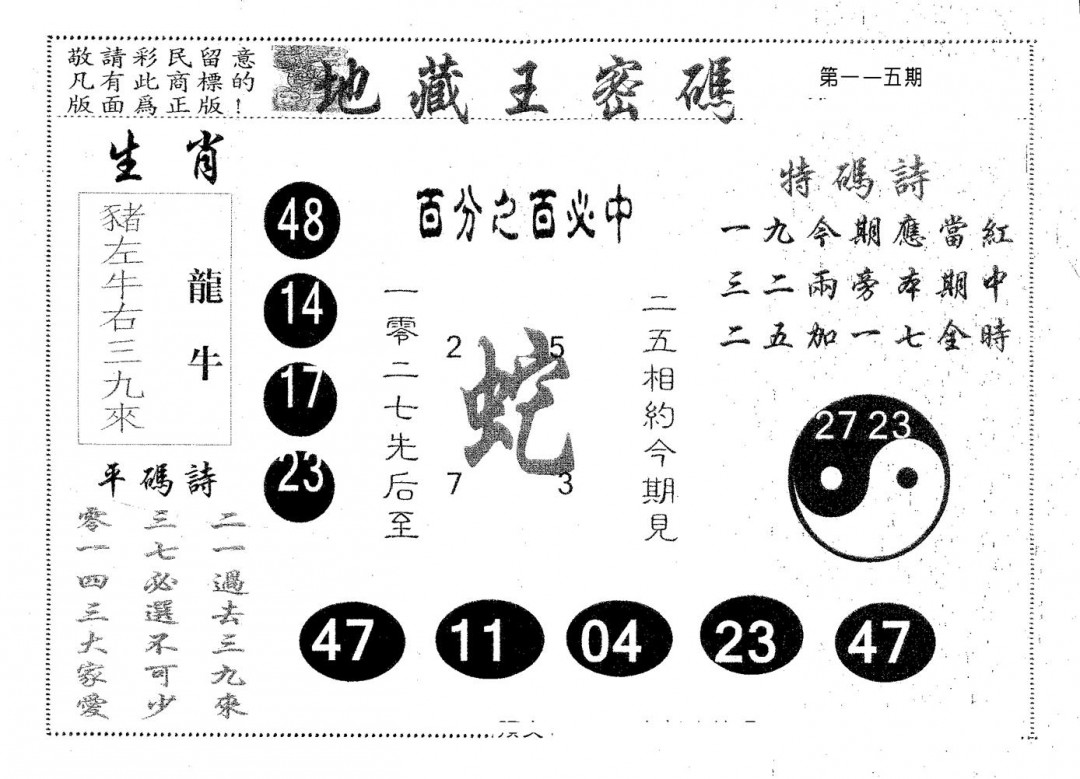 敬請彩民留意
凡有此商標的
版面爲正版！
地藏王密碼
第一一五期
生肖
豬左牛右三九來
龍牛
48
14
17
23
百分之百必中
一零二七先后至
2 5
蛇
7 3
二五相約今期見
特碼詩
一九今期應當紅
三二兩旁本期中
二五加一七全時
27 23
平碼詩
二一過去三九來
三七必選不可少
零一四三大家愛
47 11 04 23 47